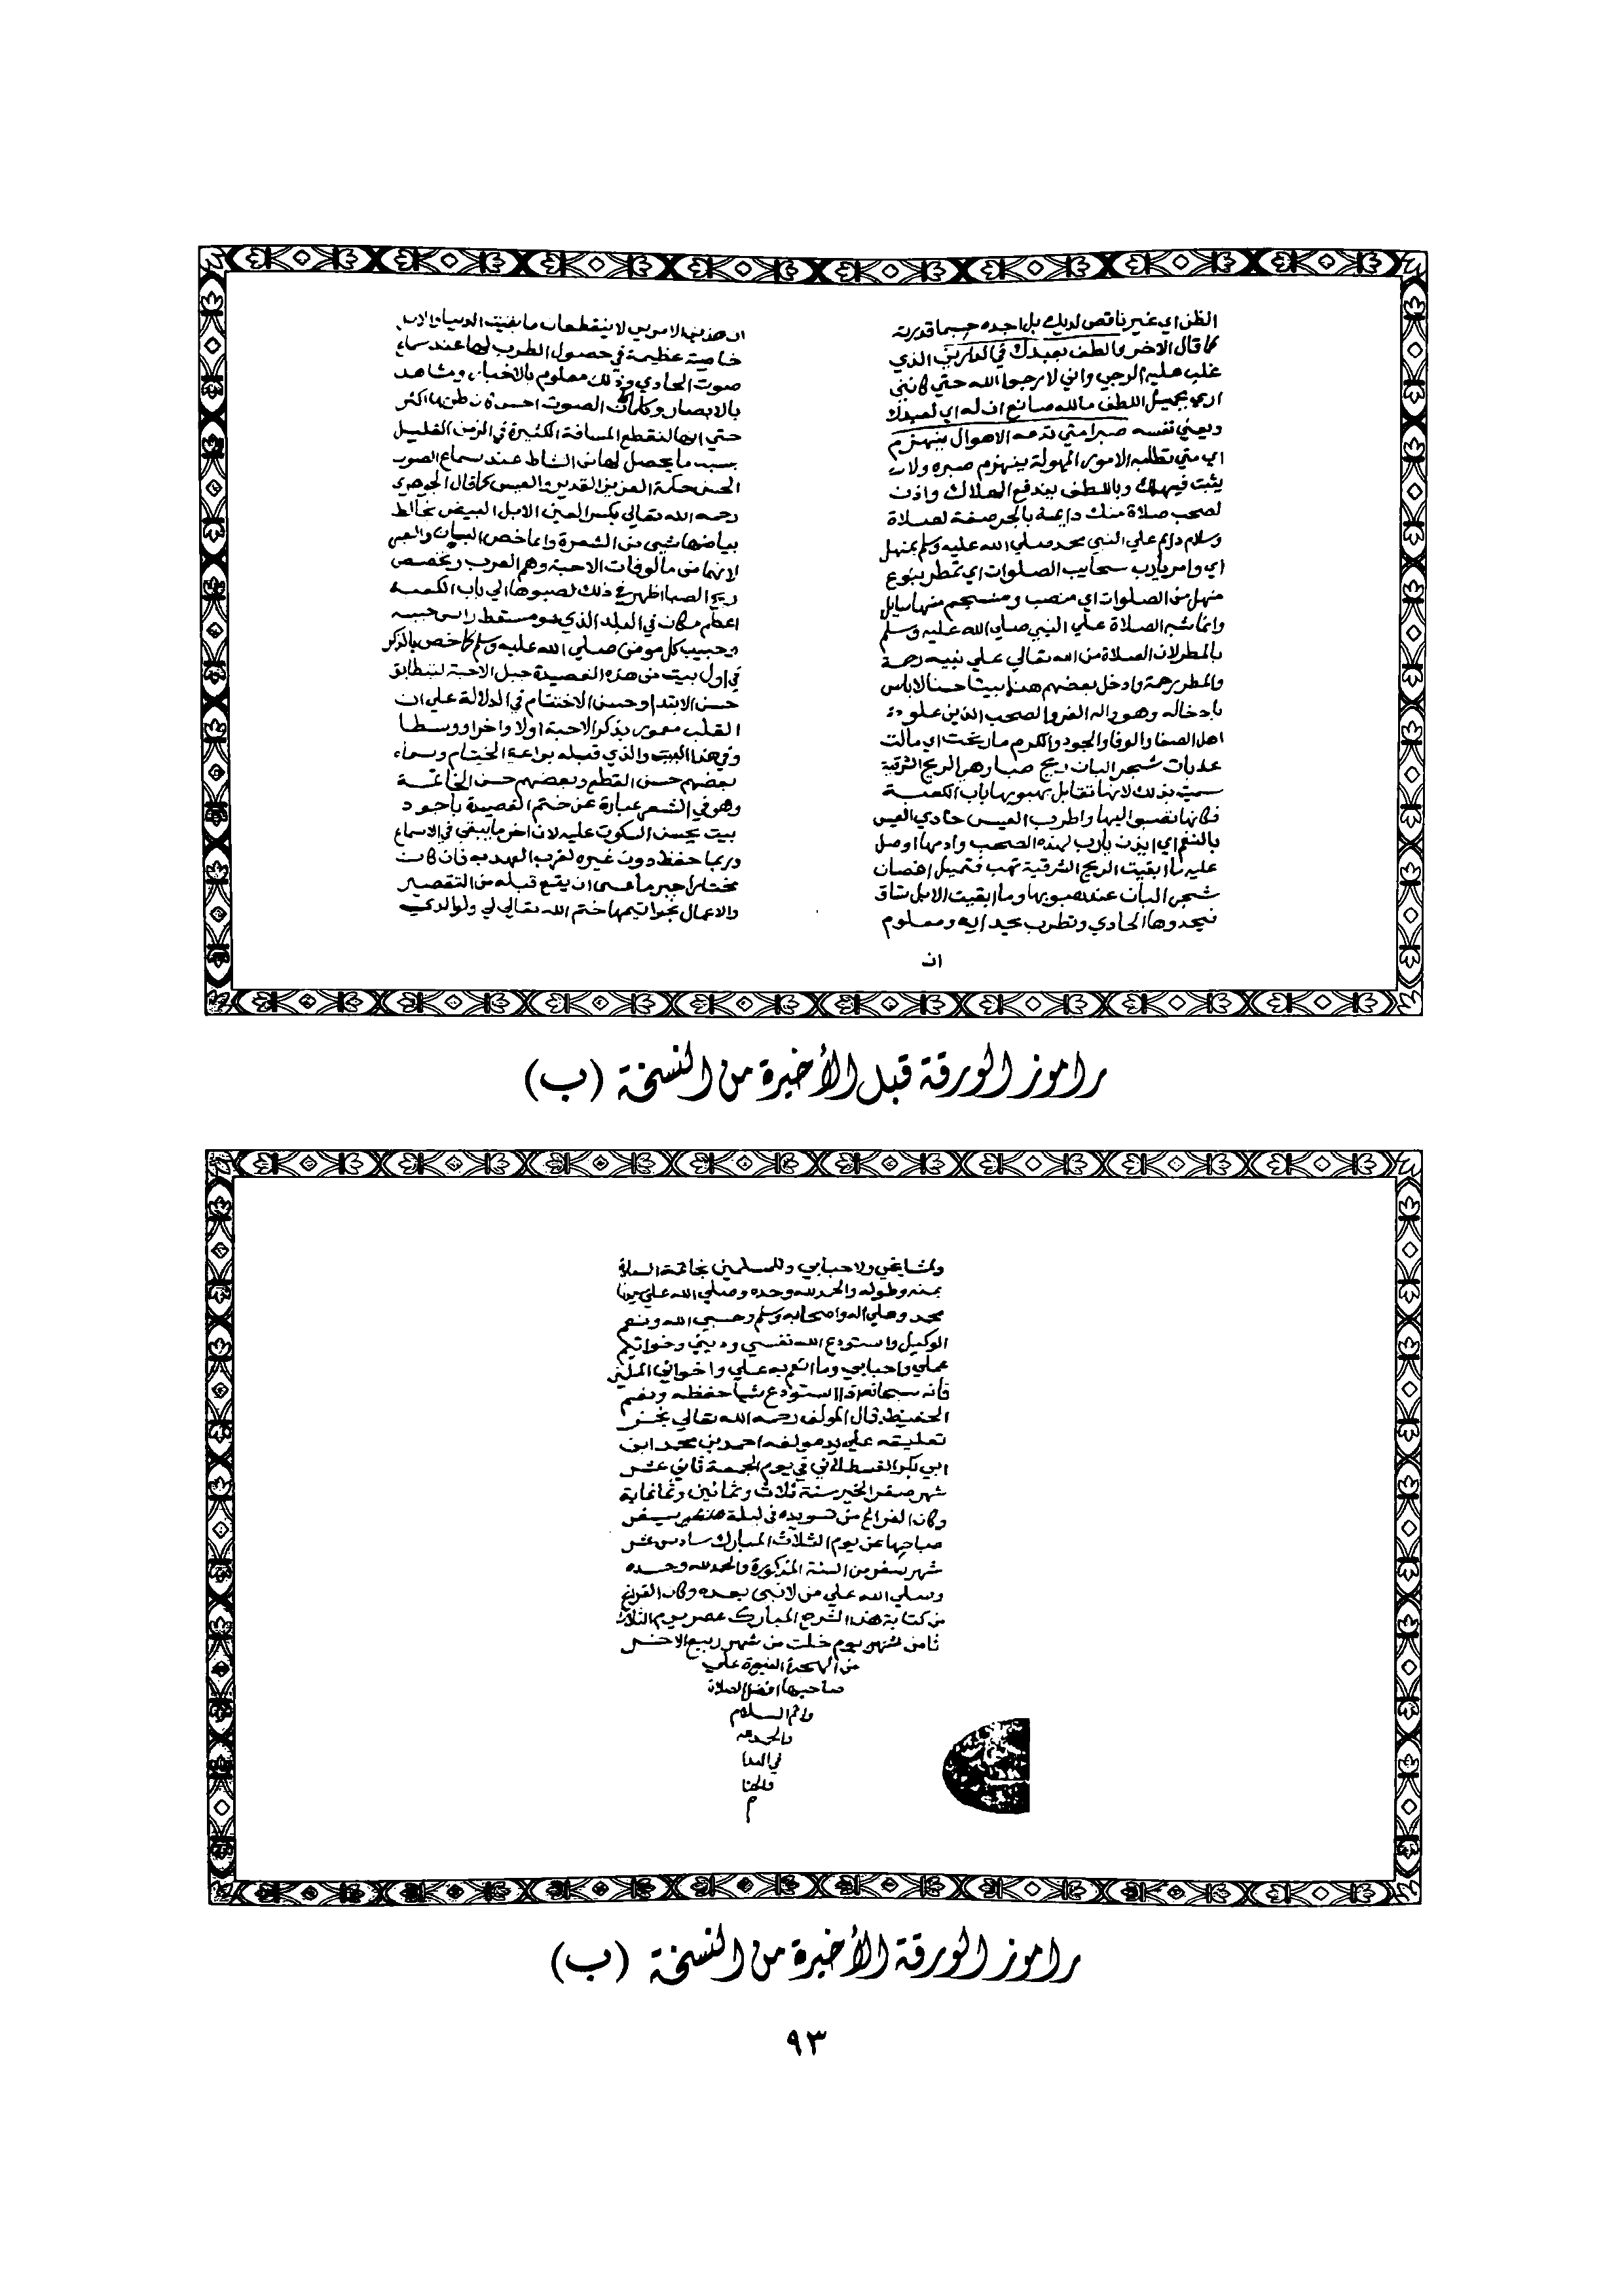 الظن اي غير ناقص لديك بل اجده حسبما قدرته
كما قال الاخر والطف بعبدك في الدارين الذي
غلب عليه الرجي واني لا رجوا الله حتي كانني
اري بجميل اللطف مالله صانع ان له اي لعبدك
ويعني نفسه صبرا متي تدعه الاهوال ينهزم
اي متي تطلبه الامور المهولة ينهزم صبره ولا
يثبت فيهلك وباللطف يندفع الهلاك واذن
لصحب صلاة منك دايمة بالجر صفة لصلاة
وسلام دايم علي النبي محمد صلي الله عليه وسلم بمنهل
اي وامر يارب سحايب الصلوات اي تمطر بنوع
منهل من الصلوات اي منصب ومنسجم منها سايل
وانما شبه الصلاة علي النبي صلي الله عليه وسلم
بالمطر لان الصلاة من الله تعالي علي نبيه رحمة
والمطر رحمة وادخل بعضهم هنا بيتا حسنا لا باس
بادخاله وهو واله الغر والصحب الذين علوا
اهل الصفا والوفا والجود والكرم ما رنحت اي مالت
عذبات شجر البان ريح صبا وهي الريح الشرقية
سميت بذلك لانها تقابل بهبوبها باب الكعبة
فكانها تصبوا اليها واطرب العيس حادي العيس
بالنغم اي ايذن يارب لهذه الصحب وادمها اوصل
عليه ما ابقيت الريح الشرقية تهب فتميل اغصان
شجر البان عند هبوبها وما ابقيت الابل تساق
فيحدوها الحادي وتطرب بحدايه ومعلوم
ان
ان هذين الامرين لا ينقطعان ما بقيت الدنيا والابل
خاصية عظيمة في حصول الطرب لها عند سماع
صوت الحادي وذلك معلوم بالاخبار ومشاهد
بالابصار وكلما كان الصوت احسن كان طربها اكثر
حتي انها لتقطع المسافة الكثيرة في الزمن القليل
بسبب ما يحصل لها من النشاط عند سماع الصوت
الحسن حكمة العزيز القدير والعيس كما قال الجوهري
رحمه الله تعالي بكسر العين الابل البيض يخالط
بياضها شي من الشقرة وانما خص البان والعيس
لانهما من مالوفات الاحبة وهم العرب وتخصيص
ريح الصبا اظهر في ذلك لصبوها الي باب الكعبة
اعظم مكان في البلد الذي هو مسقط راس حبيبه
وحبيب كل مومن صلي الله عليه وسلم كما خص بالذكر
في اول بيت من هذه القصيدة جبل الاحبة لتطابق
حسن الابتداء وحسن الاختتام في الدلالة علي ان
القلب معمور بذكر الاحبة اولا واخرا ووسطا
وفي هذا البيت والذي قبله براعة الختام وسماه
بعضهم حسن المقطع وبعضهم حسن الخاتمة
وهو في الشعر عبارة عن ختم القصيدة باجود
بيت يحسن السكوت عليه لانه اخر ما يبقي في الاسماع
وربما حفظ دون غيره لقرب العهد به فان كان
مختارا جبر ما عسي ان يقع قبله من التقصير
والاعمال بخواتيمها ختم الله تعالي لي ولوالدي
راموز الورقة قبل الأخيرة من النسخة (ب)
ولمشايخي ولاحبابي وللمسلمين بخاتمة السعادة
بمنه وطوله والحمد لله وحده وصلي الله علي سيدنا
محمد وعلي اله واصحابه وسلم وحسبي الله ونعم
الوكيل واستودع الله نفسي وديني وخواتيم
عملي واحبابي وما انعم به علي واخواني المسلمين
فانه سبحانه اذا استودع شيا حفظه ونعم
الحفيظ. قال المولف رحمه الله تعالي نجز
تعليقه علي يد مولفه احمد بن محمد ابن
ابي بكر القسطلاني في يوم الجمعة ثاني عشر
شهر صفر الخير سنة ثلاث وثمانين وثمانماية
وكان الفراغ من تسويده في ليلة يسفر
صباحها عن يوم الثلاث المبارك سادس عشر
شهر صفر من السنة المذكورة والحمد لله وحده
وصلي الله علي من لا نبي بعده وكان الفراغ
من كتابة هذا الشرح المبارك عصر يوم الثلاث
ثامن يوم خلت من شهر ربيع الاخر
من الهجرة النبوية علي
صاحبها افضل الصلاة
واتم السلام
والحمد لله
في المبدا
والختا
م
راموز الورقة الأخيرة من النسخة (ب)
٩٣